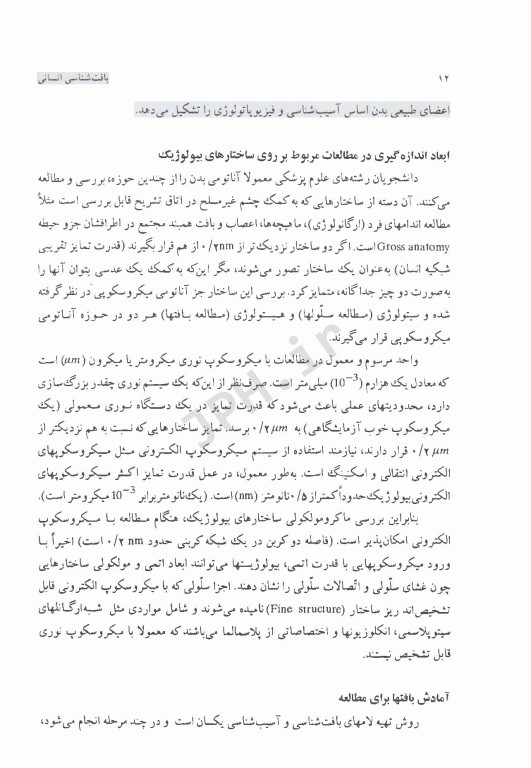 ۱۲
بافت‌شناسی انسانی
اعضای طبیعی بدن اساس آسیب‌شناسی و فیزیوپاتولوژی را تشکیل می‌دهد.
ابعاد اندازه‌گیری در مطالعات مربوط بر روی ساختارهای بیولوژیک
دانشجویان رشته‌های علوم پزشکی معمولا آناتومی بدن را از چندین حوزه، بررسی و مطالعه
می‌کنند. آن دسته از ساختارهایی که به کمک چشم غیرمسلح در اتاق تشریح قابل بررسی است مثلاً
مطالعه اندامهای فرد (ارگانولوژی)، ماهیچه‌ها، اعصاب و بافت همبند مجتمع در اطرافشان جزو حیطه
Gross anatomy است. اگر دو ساختار نزدیک‌تر از ۰/۲nm از هم قرار بگیرند (قدرت تمایز تقریبی
شبکیه انسان) به‌عنوان یک ساختار تصور می‌شوند، مگر این‌که به‌کمک یک عدسی بتوان آنها را
به‌صورت دو چیز جداگانه، متمایز کرد. بررسی این ساختار جز آناتومی میکروسکوپی در نظر گرفته
شده و سیتولوژی (مطالعه سلّولها) و هیستولوژی (مطالعه بافتها) هر دو در حوزه آناتومی
میکروسکوپی قرار می‌گیرند.
واحد مرسوم و معمول در مطالعات با میکروسکوپ نوری میکرومتر یا میکرون (μm) است
که معادل یک هزارم (10⁻³) میلی‌متر است. صرف‌نظر از این‌که یک سیستم نوری چقدر بزرگ‌سازی
دارد، محدودیتهای عملی باعث می‌شود که قدرت تمایز در یک دستگاه نوری معمولی (یک
میکروسکوپ خوب آزمایشگاهی) به ۰/۲ μm برسد. تمایز ساختارهایی که نسبت به هم نزدیکتر از
۰/۲ μm قرار دارند، نیازمند استفاده از سیستم میکروسکوپ الکترونی مثل میکروسکوپهای
الکترونی انتقالی و اسکنینگ است. به‌طور معمول، در عمل قدرت تمایز اکثر میکروسکوپهای
الکترونی بیولوژیک حدوداً کمتر از ۰/۵ نانومتر (nm) است. (یک نانومتر برابر 10⁻³ میکرومتر است).
بنابراین بررسی ماکرومولکولی ساختارهای بیولوژیک، هنگام مطالعه با میکروسکوپ
الکترونی امکان‌پذیر است. (فاصله دو کربن در یک شبکه کربنی حدود ۰/۲ nm است) اخیراً با
ورود میکروسکوپهایی با قدرت اتمی، بیولوژیستها می‌توانند ابعاد اتمی و مولکولی ساختارهایی
چون غشای سلّولی و اتّصالات سلّولی را نشان دهند. اجزا سلّولی که با میکروسکوپ الکترونی قابل
تشخیص‌اند ریز ساختار (Fine structure) نامیده می‌شوند و شامل مواردی مثل شبه‌ارگانلهای
سیتوپلاسمی، انکلوزیونها و اختصاصاتی از پلاسمالما می‌باشند که معمولا با میکروسکوپ نوری
قابل تشخیص نیستند.
آمادش بافتها برای مطالعه
روش تهیه لامهای بافت‌شناسی و آسیب‌شناسی یکسان است و در چند مرحله انجام می‌شود،
JPH.ir